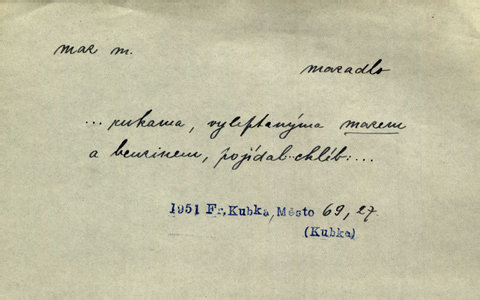 maz m.
mazadlo
... rukama, vyleptanýma mazem
a benzinem, pojídal chléb....
1951 Fr. Kubka, Město 69, 27
(Kubka)